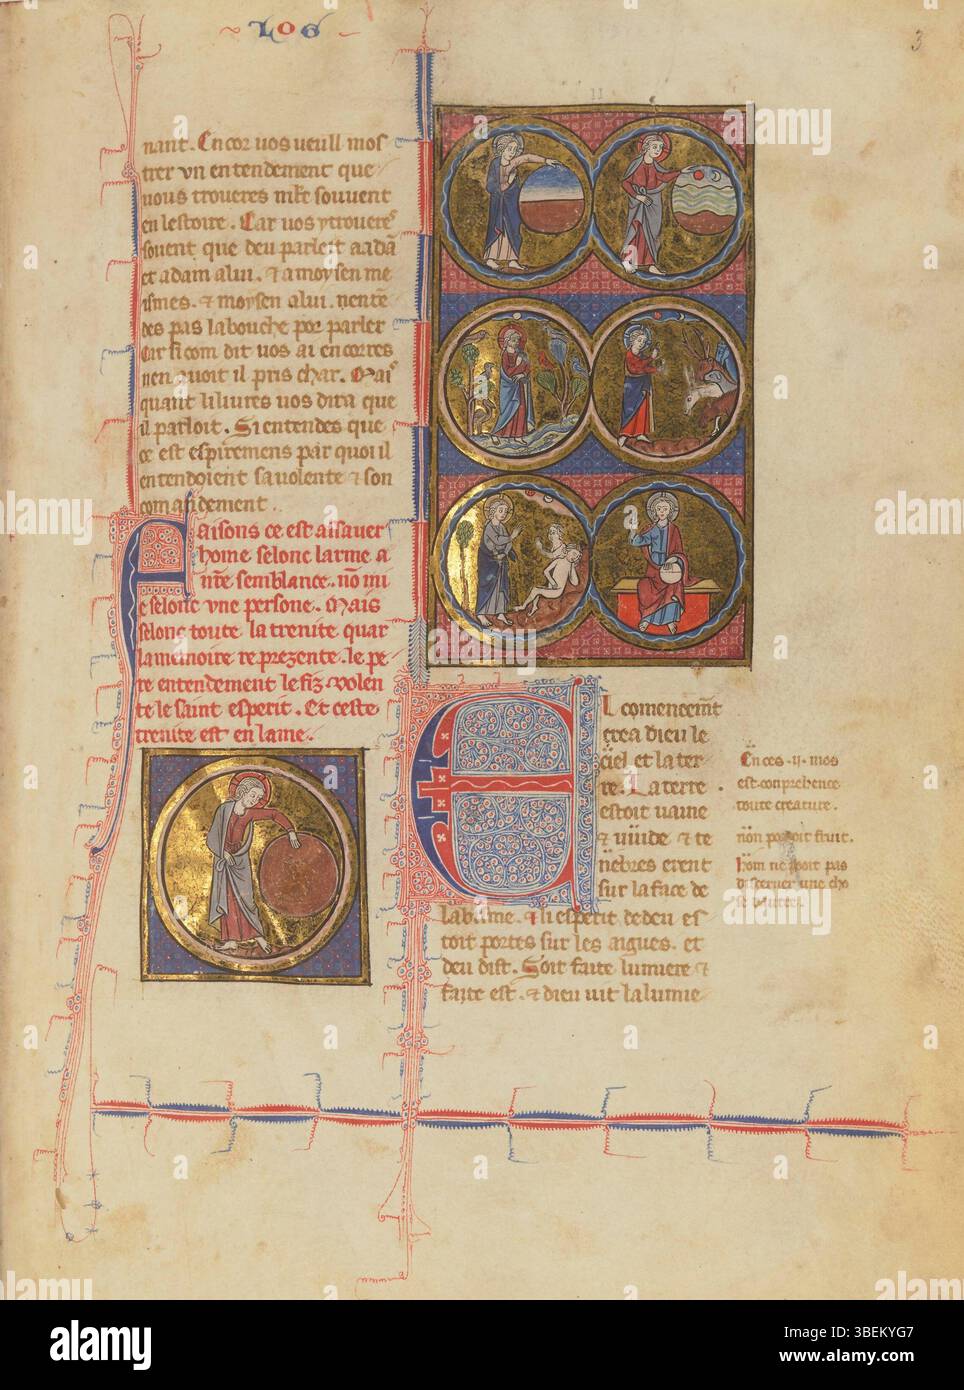 LOG
3
II
nant. Encor vos veull mos
trer vn entendement que
vous troueres mlt souuent
en lestoire. Car vos ytroueres
souent que deu parleit a adā
et adam a lui. & a moysen me
ismes. & moysen a lui. nente
des pas la bouche por parler
car si com dit vos ai encor es
nen quoit il pris char. Mais
quant li liures vos dira que
il parloit. Si entendes que
ce est espiremens par quoi il
entendoient sa volente & son
comādement.
Faisons ce est assauer
home selonc larme a
nr̄e semblance. nō mi
e selonc vne persone. Mais
selonc toute la trenite quar
la memoire reprezente. le pe
re entendement le fiz & volen
te le saint esperit. Et ceste
trenite est en lame.
El comencemt
crea dieu le
ciel et la ter
re. La terre
estoit uaine
& uuide & te
nebres erent
sur la face de
labisme. & li esperit de deu es
toit portes sur les aigues. et
deu dist. Soit faite lumiere &
faite est. & dieu uit la lumie
En ces .ij. mos
est conprehence
toute creature.
nōn portoit fruit.
hom ne poit pas
discerner une cho
se
alamy
Image ID: 3BEKYG7
www.alamy.com